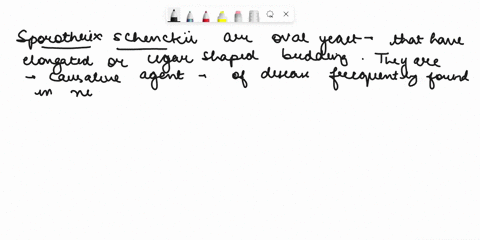 Sporothrix schenckii are oval yeast → that have
elongated or cigar shaped budding. They are
→ causative agent → of disease frequently found
in ne